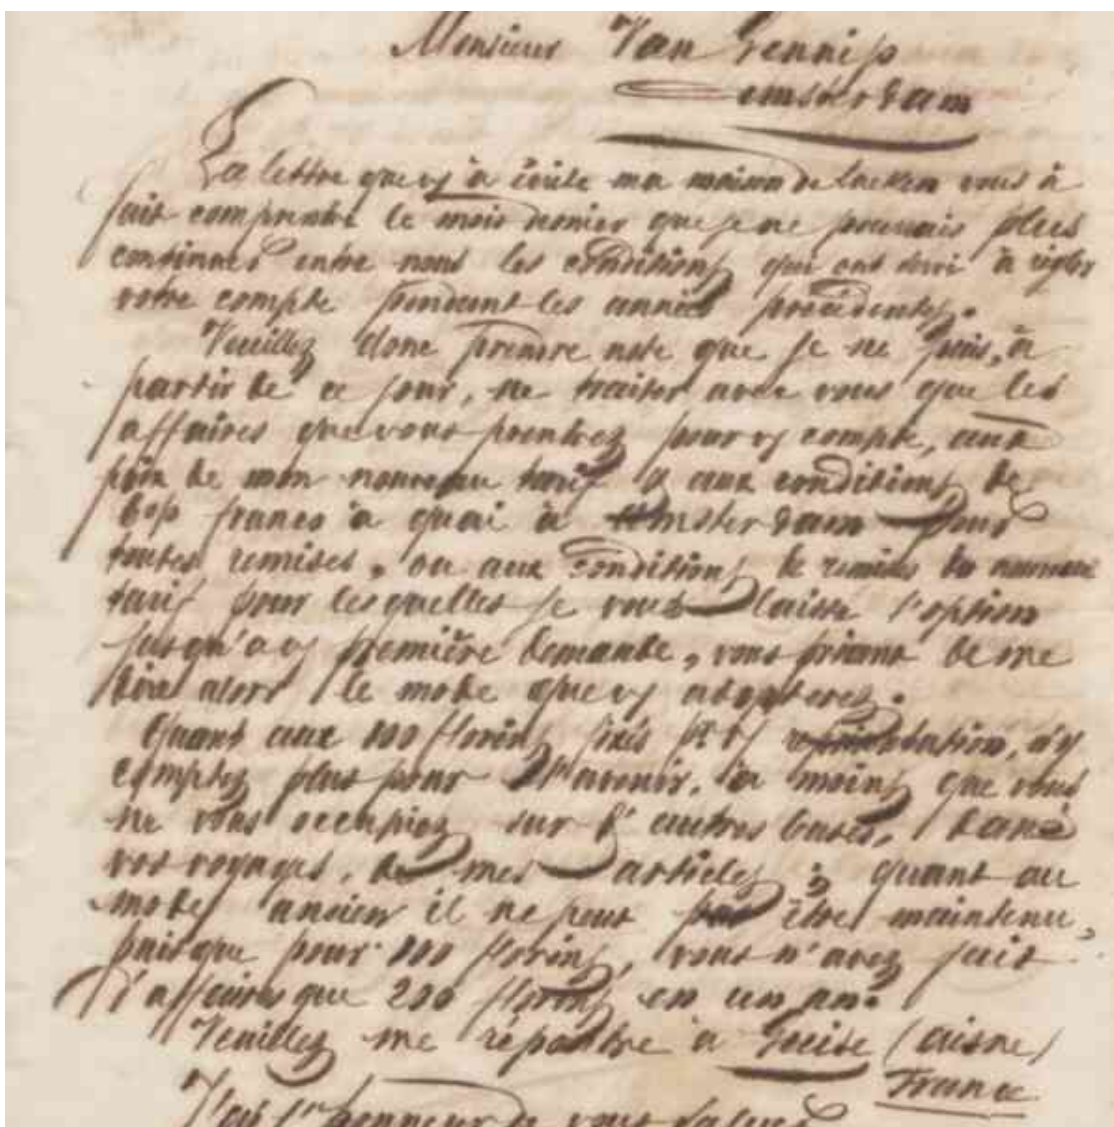 Monsieur Van Gennip
Amsterdam
La lettre que vs a écrite ma maison de Laeken vous a
fait comprendre le mois dernier que je ne pouvais plus
continuer entre nous les conditions qui ont servi à régler
votre compte pendant les années précédentes.
Veuillez donc prendre note que je ne puis, à
partir de ce jour, ne traiter avec vous que les
affaires que vous prendrez pour vs compte, aux
prix de mon nouveau tarif & aux conditions de
franco à quai à Amsterdam pour
toutes remises, ou aux conditions de remises du nouveau
tarif pour lesquelles je vous laisse l'option
jusqu'à vs première demande, vous priant de me
dire alors le mode que vs adopterez.
Quant aux 100 florins fixés pr vs représentation, n'y
comptez plus pour l'avenir, à moins que vous
ne vous occupiez sur d'autres bases, dans
vos voyages, de mes articles ; quant au
mode ancien il ne peut pas être maintenu,
puisque pour 100 florins, vous n'avez fait
d'affaires que 200 florins en un an.
Veuillez me répondre à Guise (Aisne)
France
J'ai l'honneur de vous saluer